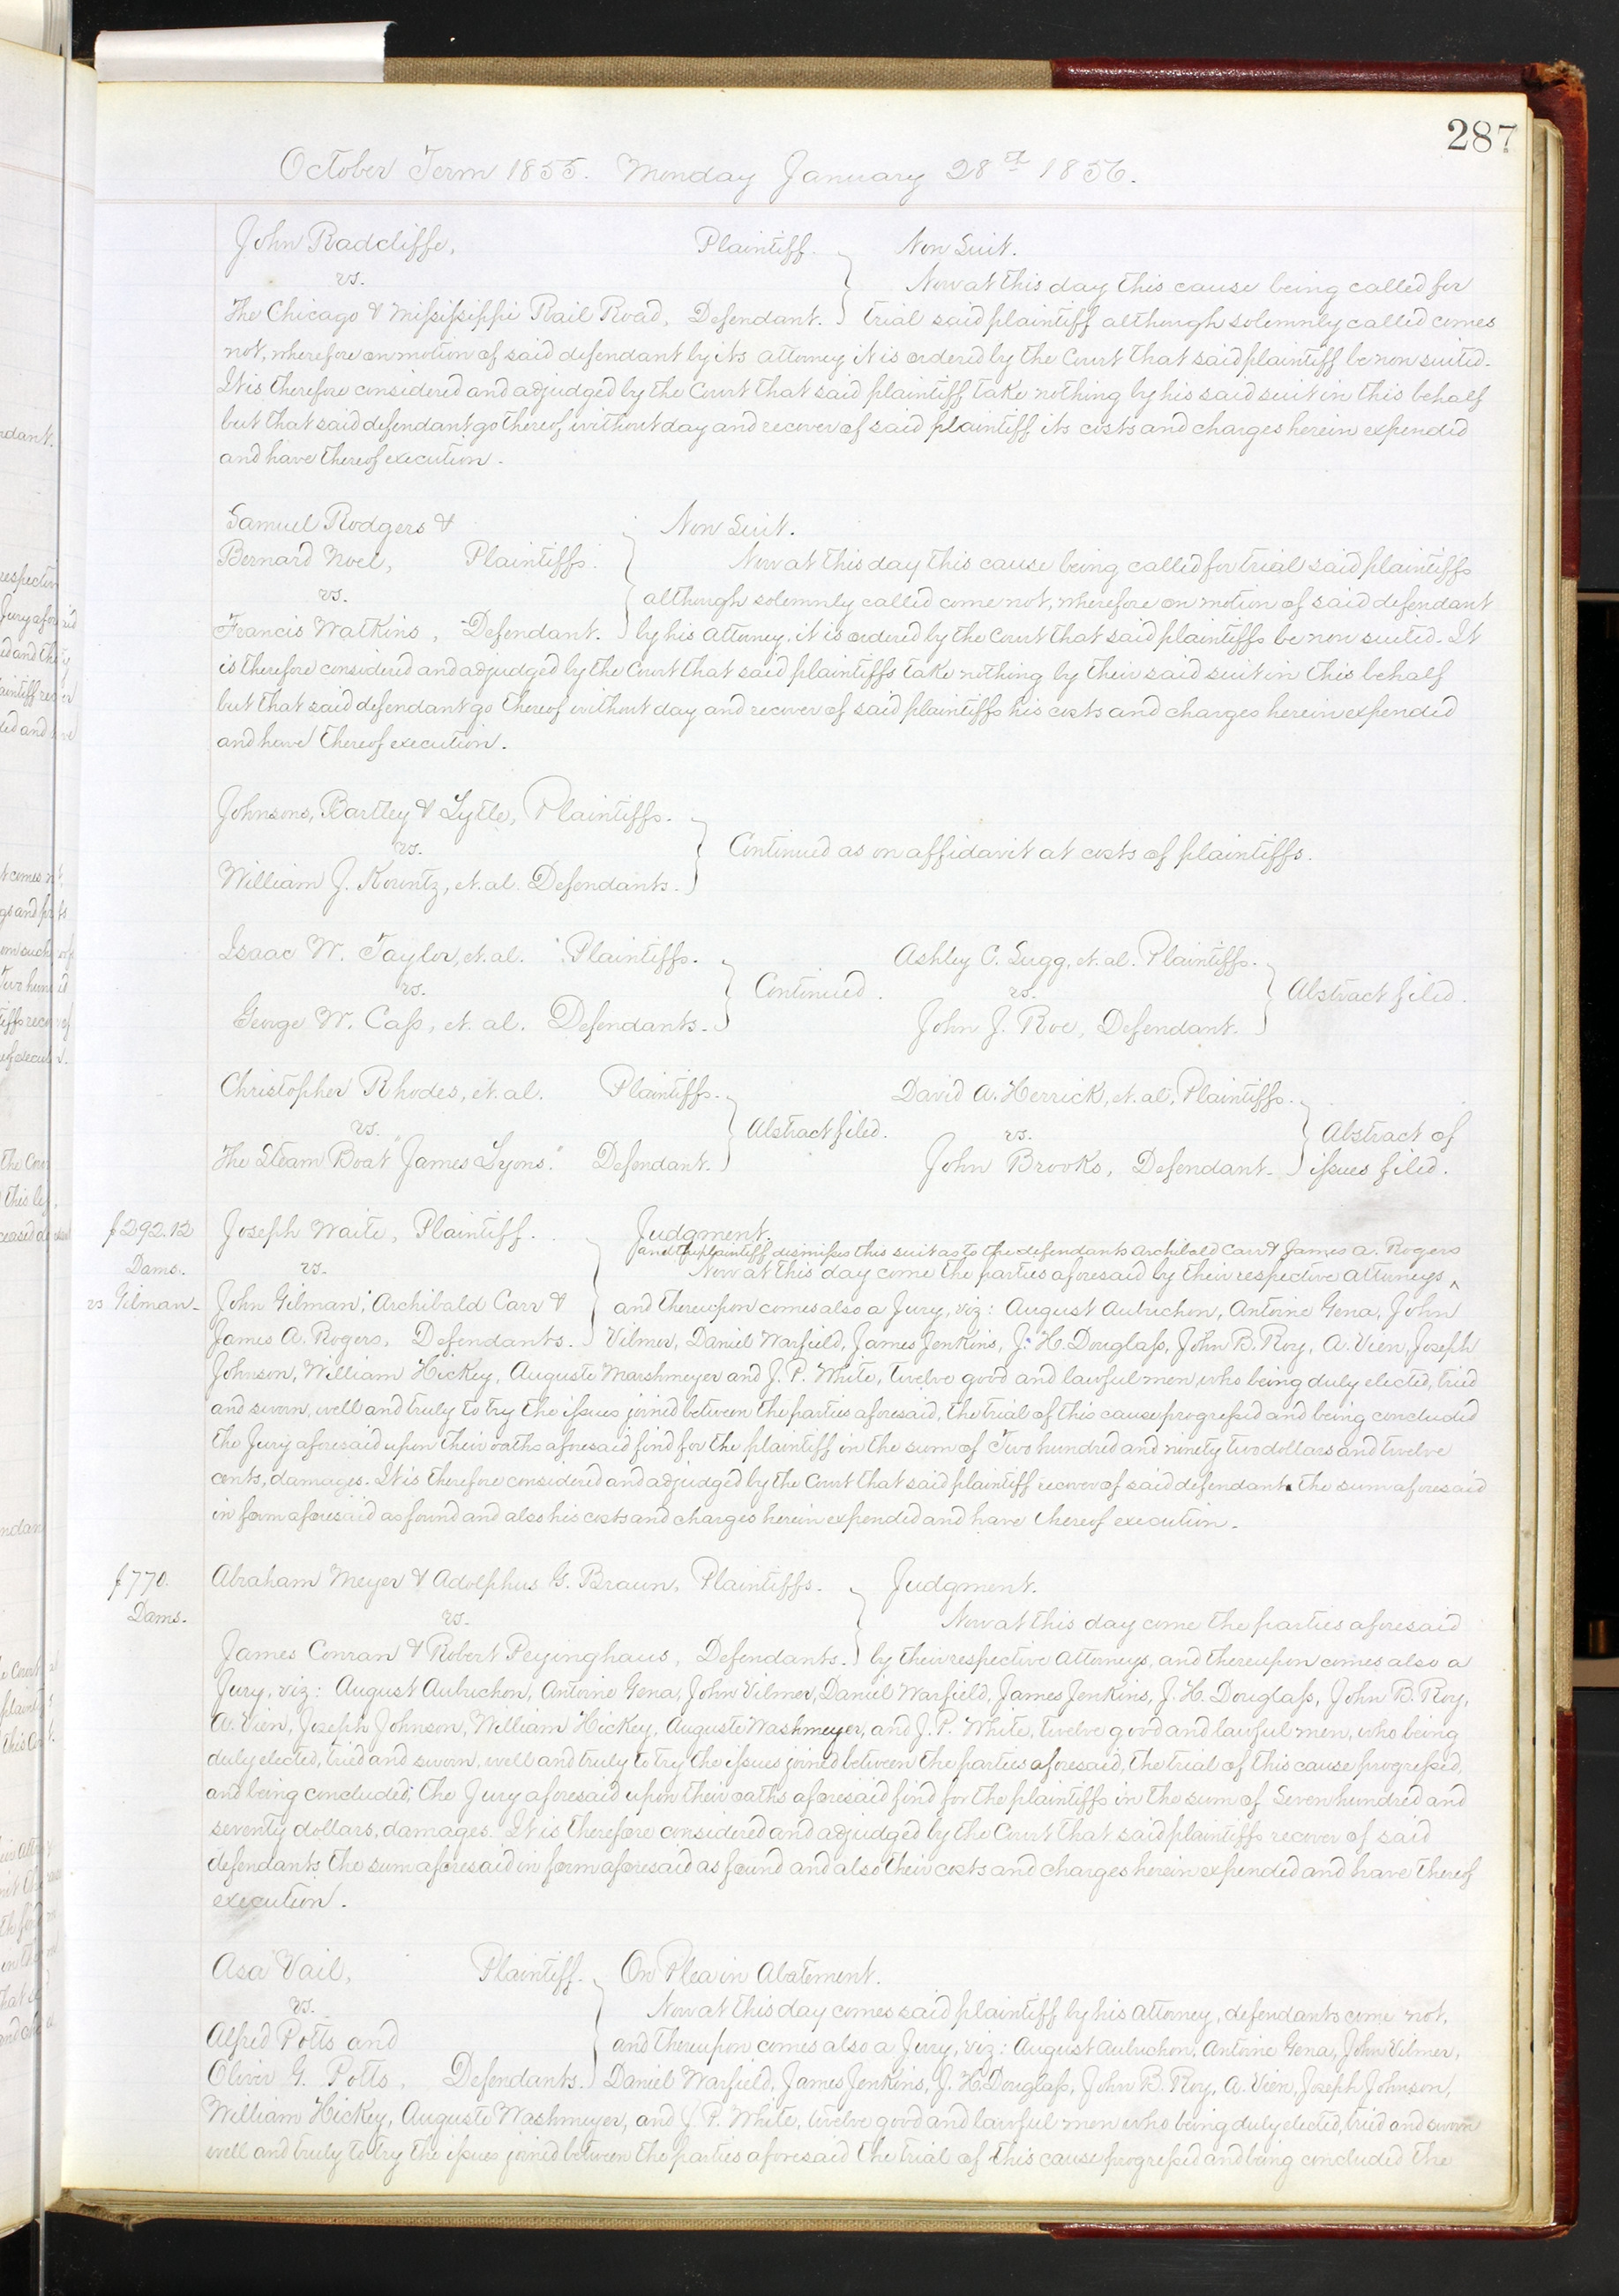 287
October Term 1855. Monday January 28th 1856.
John Radcliffe, Plaintiff. Non Suit.
vs. Now at this day this cause being called for
The Chicago & Mississippi Rail Road, Defendant. trial said plaintiff although solemnly called comes
not, wherefore on motion of said defendant by its attorney it is ordered by the Court that said plaintiff be non suited.
It is therefore considered and adjudged by the Court that said plaintiff take nothing by his said suit in this behalf
but that said defendant go thereof without day and recover of said plaintiff its costs and charges herein expended
and have thereof execution.
Samuel Rodgers & Non Suit.
Bernard Noel, Plaintiffs. Now at this day this cause being called for trial said plaintiffs
vs. although solemnly called come not, wherefore on motion of said defendant
Francis Watkins, Defendant. by his attorney, it is ordered by the Court that said plaintiffs be non suited. It
is therefore considered and adjudged by the Court that said plaintiffs take nothing by their said suit in this behalf
but that said defendant go thereof without day and recover of said plaintiffs his costs and charges herein expended
and have thereof execution.
Johnsons, Bartley & Lytle, Plaintiffs.
vs. Continued as on affidavit at costs of plaintiffs.
William J. Kountz, et. al. Defendants.
Isaac W. Taylor, et. al. Plaintiffs.
vs. Continued.
George W. Cass, et. al. Defendants.
Ashley C. Sugg, et. al. Plaintiffs.
vs. Abstract filed.
John J. Roe, Defendant.
Christopher Rhodes, et. al. Plaintiffs.
vs. Abstract filed.
The Steam Boat "James Lyons." Defendant.
David A. Herrick, et. al., Plaintiffs.
vs. Abstract of
John Brooks, Defendant. issues filed.
$292.12 Joseph Waite, Plaintiff. Judgment.
and the plaintiff dismisses this suit as to the defendants Archibald Carr & James A. Rogers
Dams. vs. Now at this day come the parties aforesaid by their respective attorneys ^
vs Gilman. John Gilman, Archibald Carr & and thereupon comes also a Jury, viz: August Aubuchon, Antoine Gena, John
James A. Rogers, Defendants. Vilmer, Daniel Warfield, James Jenkins, J. H. Douglass, John B. Roy, A. Vien, Joseph
Johnson, William Hickey, Auguste Marshmeyer and J. P. White, twelve good and lawful men, who being duly elected, tried
and sworn, well and truly to try the issues joined between the parties aforesaid, the trial of this cause progressed and being concluded
the Jury aforesaid upon their oaths aforesaid find for the plaintiff in the sum of Two hundred and ninety two dollars and twelve
cents, damages. It is therefore considered and adjudged by the Court that said plaintiff recover of said defendant the sum aforesaid
in form aforesaid as found and also his costs and charges herein expended and have thereof execution.
$770. Abraham Meyer & Adolphus G. Braun, Plaintiffs. Judgment.
Dams. vs. Now at this day come the parties aforesaid
James Conran & Robert Peyinghaus, Defendants. by their respective attorneys, and thereupon comes also a
Jury, viz: August Aubuchon, Antoine Gena, John Vilmer, Daniel Warfield, James Jenkins, J. H. Douglass, John B. Roy,
A. Vien, Joseph Johnson, William Hickey, Auguste Washmeyer, and J. P. White, twelve good and lawful men, who being
duly elected, tried and sworn, well and truly to try the issues joined between the parties aforesaid, the trial of this cause progressed,
and being concluded, the Jury aforesaid upon their oaths aforesaid find for the plaintiffs in the sum of Seven hundred and
seventy dollars, damages. It is therefore considered and adjudged by the Court that said plaintiffs recover of said
defendants the sum aforesaid in form aforesaid as found and also their costs and charges herein expended and have thereof
execution.
Asa Vail, Plaintiff. On Plea in Abatement.
vs. Now at this day comes said plaintiff by his attorney, defendants come not,
Alfred Potts and and thereupon comes also a Jury, viz: August Aubuchon, Antoine Gena, John Vilmer,
Oliver G. Potts, Defendants. Daniel Warfield, James Jenkins, J. H. Douglass, John B. Roy, A. Vien, Joseph Johnson,
William Hickey, Auguste Washmeyer, and J. P. White, twelve good and lawful men who being duly elected, tried and sworn
well and truly to try the issues joined between the parties aforesaid the trial of this cause progressed and being concluded the